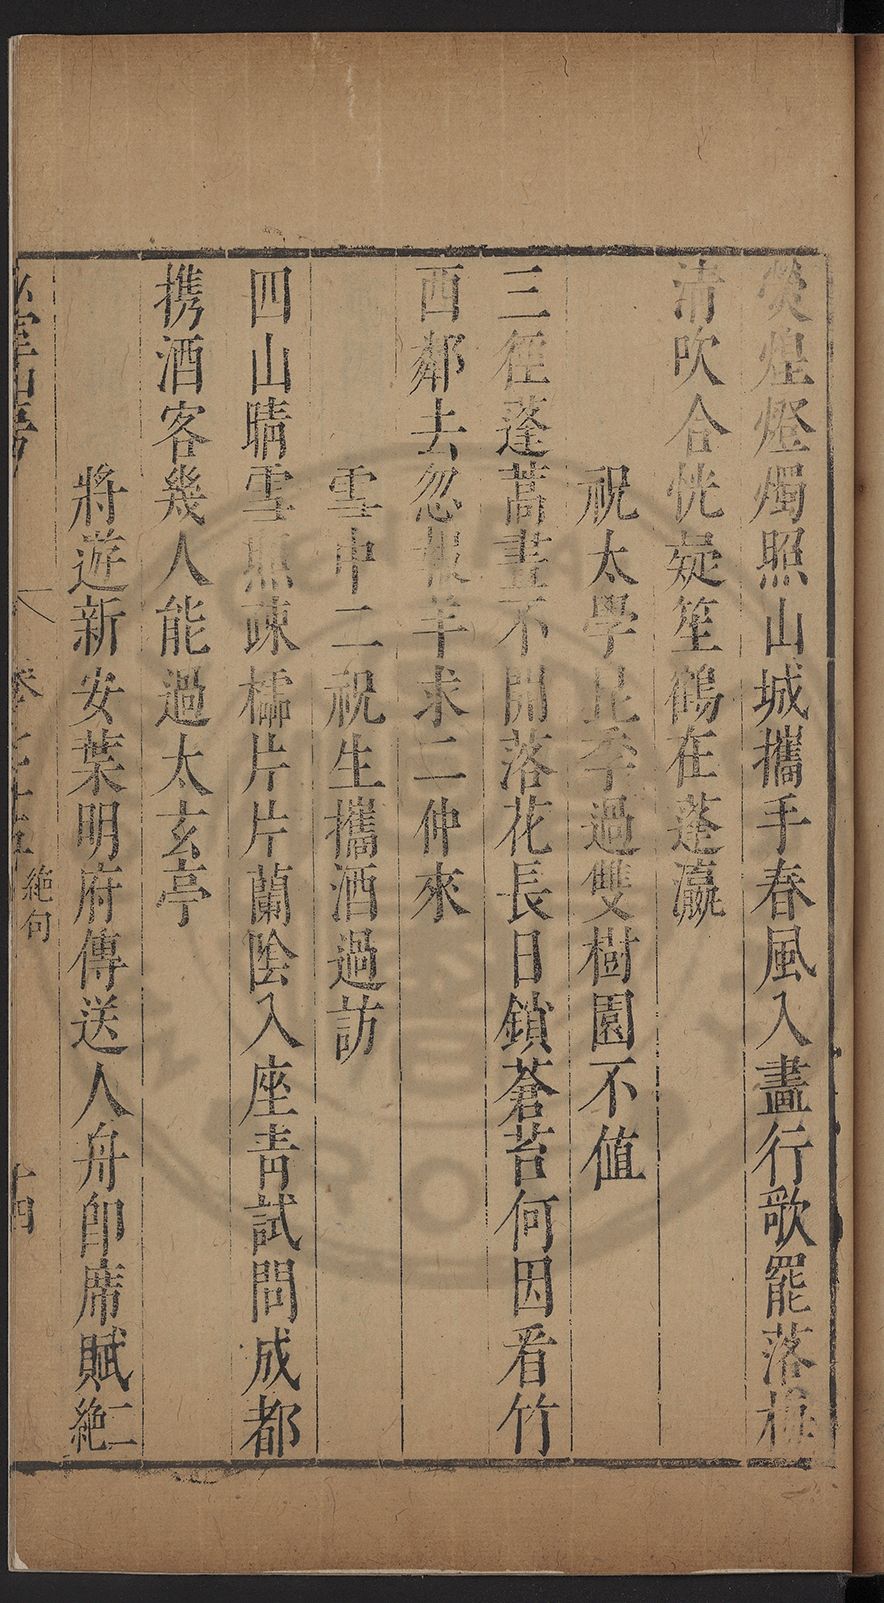 熒煌燈燭照山城攜手春風入畫行歌罷落梅
清吹合恍疑笙鶴在蓬瀛
祝太學昆季過雙樹園不値
三徑蓬蒿晝不開落花長日鎖蒼苔何因看竹
西鄰去忽報羊求二仲來
雪中二祝生攜酒過訪
四山晴雪照疎櫺片片蘭陰入座青試問成都
携酒客幾人能過太玄亭
將遊新安葉明府傳送人舟即席賦二絶
絶句